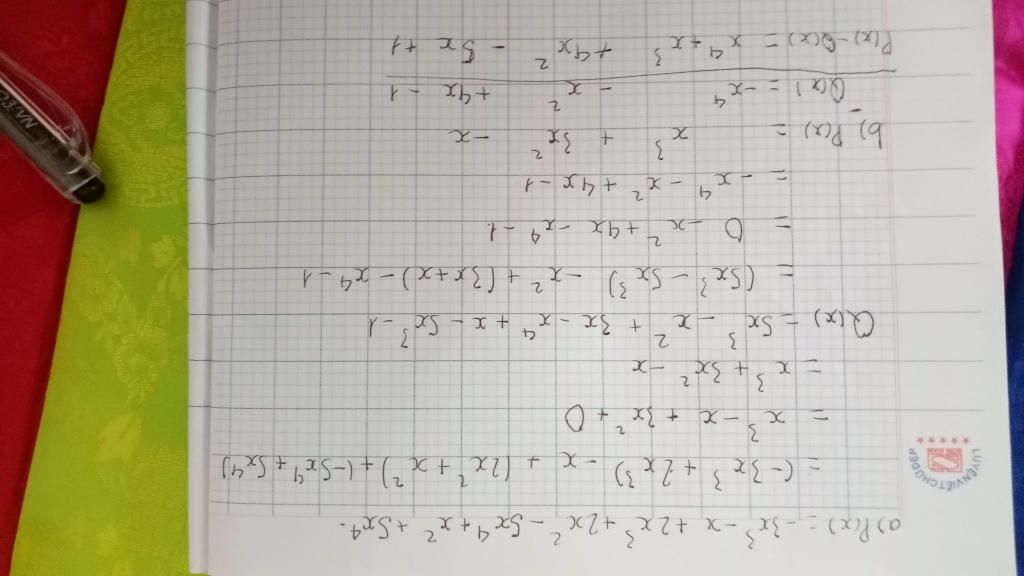 a) P(x) = -3x³ - x + 2x³ + 2x² - 5x⁴ + x² + 5x⁴.
= (-3x³ + 2x³) - x + (2x² + x²) + (-5x⁴ + 5x⁴)
= x³ - x + 3x² + 0
= x³ + 3x² - x
Q(x) = 5x³ - x² + 3x - x⁴ + x - 5x³ - 1
= (5x³ - 5x³) - x² + (3x + x) - x⁴ - 1
= 0 - x² + 4x - x⁴ - 1
= -x⁴ - x² + 4x - 1
b) P(x) = x³ + 3x² - x
- Q(x) = -x⁴ - x² + 4x - 1
P(x) - Q(x) = x⁴ + x³ + 4x² - 5x + 1
LUYENVIẾTCHỮĐẸP